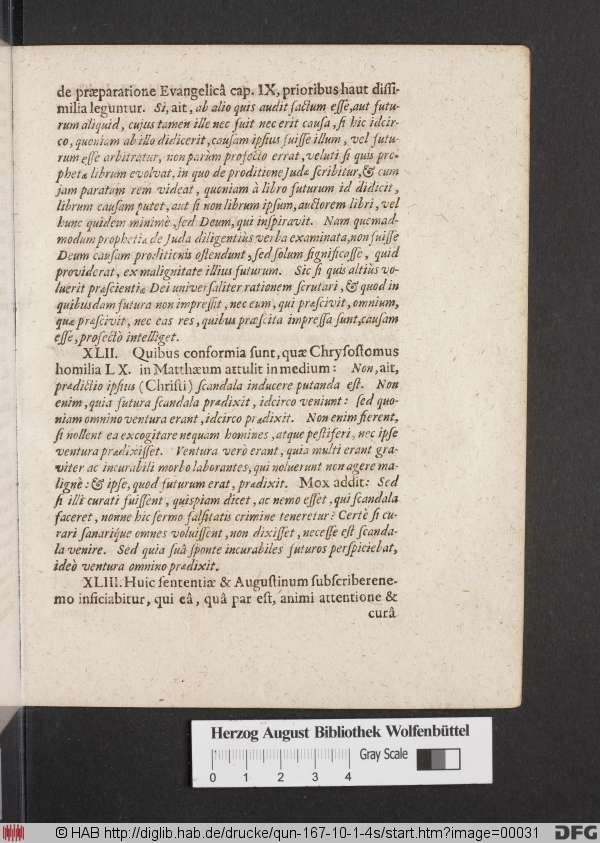 de præparatione Evangelicâ cap. IX, prioribus haut dissi-
milia leguntur. Si, ait, ab alio quis audit factum esse, aut futu-
rum aliquid, cujus tamen ille nec fuit nec erit causa, si hic idcir-
co, quoniam ab illo didicerit, causam ipsius fuisse illum, vel futu-
rum esse arbitratur, non parùm profectò errat, veluti si quis pro-
phetæ librum evolvat, in quo de proditione Judæ scribitur, & cum
jam paratam rem videat, quoniam à libro futurum id didicit,
librum causam putet, aut si non librum ipsum, auctorem libri, vel
hunc quidem minimè, sed Deum, qui inspiravit. Nam quemad-
modum prophetiæ de Juda diligentiùs verba examinata, non fuisse
Deum causam proditionis ostendunt, sed solum significasse, quid
providerat, ex malignitate illius futurum. Sic si quis altiùs vo-
luerit præscientiæ Dei universaliter rationem scrutari, & quod in
quibusdam futura non impressit, nec eum, qui præscivit, omnium,
quæ præscivit, nec eas res, quibus præscita impressa sunt, causam
esse, profectò intelliget.
XLII. Quibus conformia sunt, quæ Chrysostomus
homilia LX. in Matthæum attulit in medium: Non, ait,
prædictio ipsius (Christi) scandala inducere putanda est. Non
enim, quia futura scandala prædixit, idcirco veniunt: sed quo-
niam omnino ventura erant, idcirco prædixit. Non enim fierent,
si nollent ea excogitare nequam homines, atque pestiferi, nec ipse
ventura prædixisset. Ventura verò erant, quia multi erant gra-
viter ac incurabili morbo laborantes, qui noluerunt non agere ma-
lignè: & ipse, quod futurum erat, prædixit. Mox addit: Sed
si illi curati fuissent, quispiam dicet, ac nemo esset, qui scandala
faceret, nonne hic sermo falsitatis crimine teneretur? Certè si cu-
rari sanarique omnes voluissent, non dixisset, necesse est scanda-
la venire. Sed quia suâ sponte incurabiles futuros perspiciebat,
ideò ventura omnino prædixit.
XLIII. Huic sententiæ & Augustinum subscribere ne-
mo inficiabitur, qui eâ, quâ par est, animi attentione &
curâ
Herzog August Bibliothek Wolfenbüttel
Gray Scale
0 1 2 3 4
© HAB http://diglib.hab.de/drucke/qun-167-10-1-4s/start.htm?image=00031
DFG